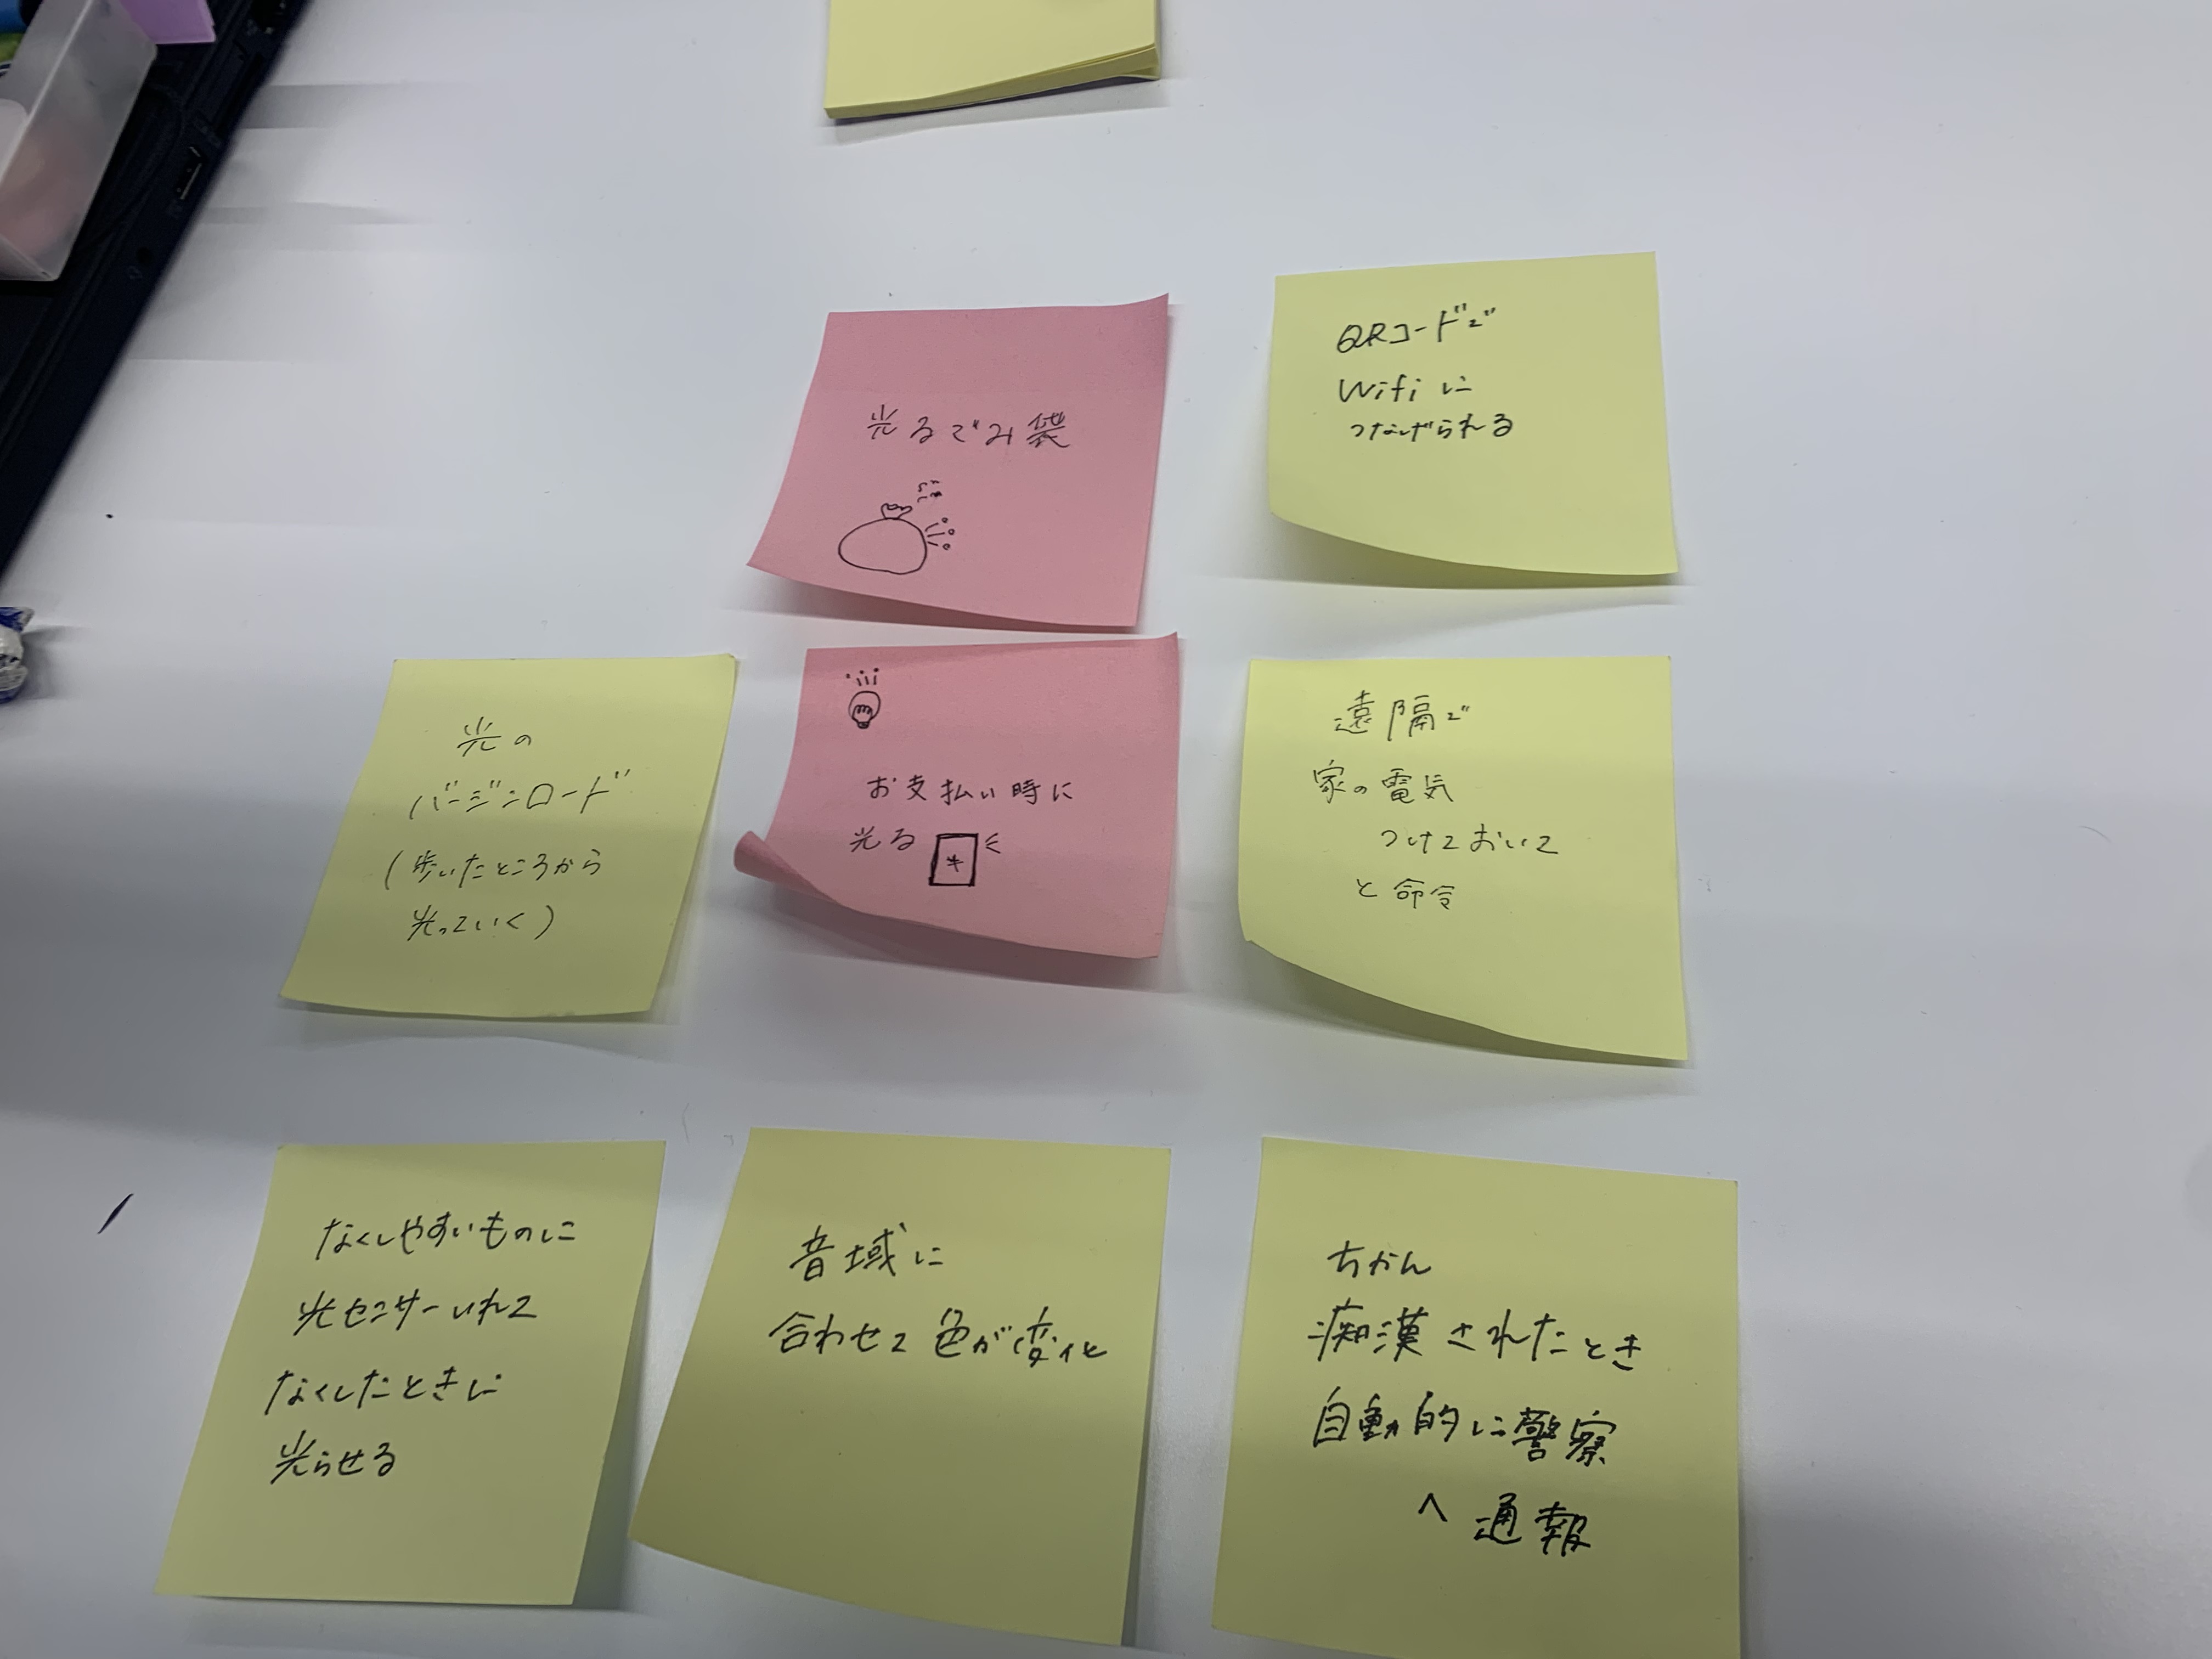 光るごみ袋
QRコードで
Wifiに
つなげられる
光の
バージンロード
(歩いたところから
光っていく)
お支払い時に
光る
遠隔で
家の電気
つけておいて
と命令
なくしやすいものに
光センサーいれて
なくしたときに
光らせる
音域に
合わせて色が変化
ちかん
痴漢されたとき
自動的に警察
へ通報